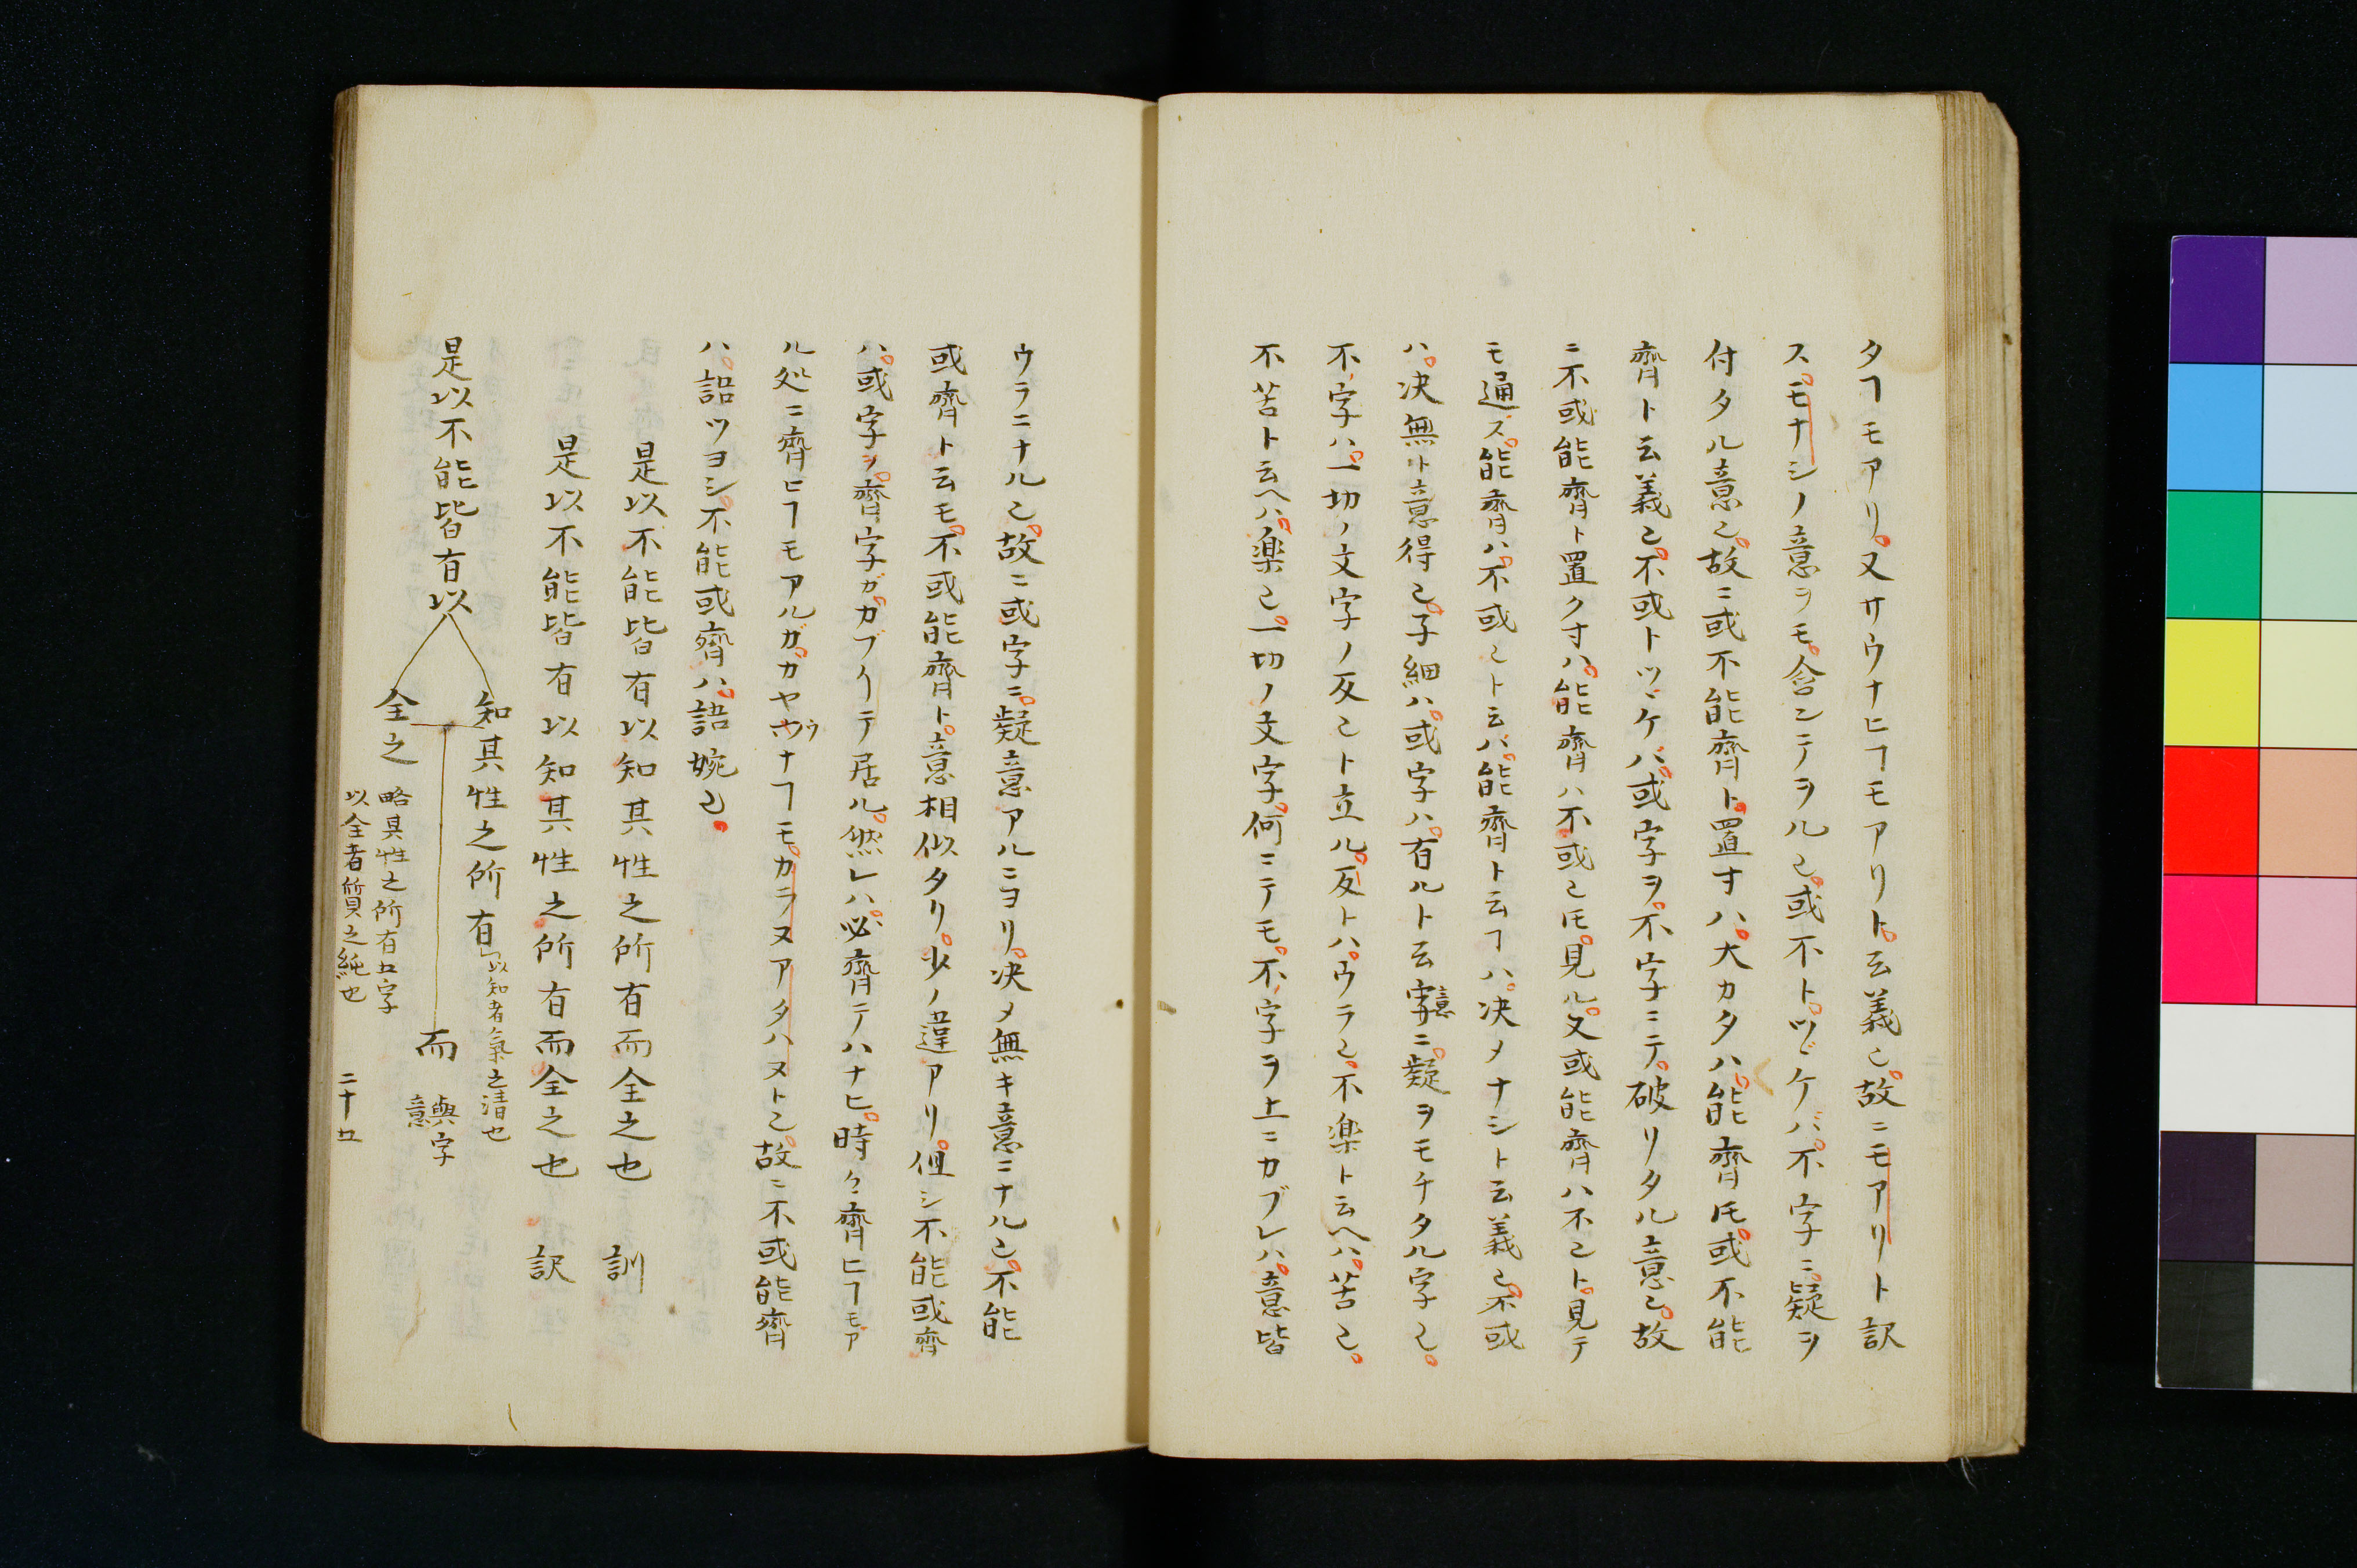 タヿモアリ。又サウナヒヿモアリト。云義㔾。故ニモアリト訳
ス。モナシノ意ヲモ。含ンテヲル㔾。或不ト。ツヾケバ。不字ニ。疑ヲ
付タル意㔾。故ニ或不能齊ト。置寸ハ。大カタハ。能齊𪜈。或不能
齊ト云義㔾。不或トツヾケバ。或字ヲ。不字ニテ。破リタル意㔾。故
ニ不或能齊ト置ク寸ハ。能齊ハ不或㔾𪜈。見ル。又或能齊ハ不㔾ト。見テ
モ通ズ。能齊ハ。不或㔾ト云バ。能齊ト云ヿハ。决メナシト云義㔾。不或
ハ。决無ト意得㔾。子細ハ。或字ハ。有ルト云字意ニ。疑ヲモチタル字㔾。
不字ハ。一切ノ文字ノ反㔾ト立ル。反トハ。ウラ㔾。不楽ト云ヘハ。苦㔾。
不苦ト云ヘハ。楽㔾。一切ノ文字。何ニテモ。不字ヲ上ニカブレハ。意皆
ウラニナル㔾。故ニ或字ニ。疑意アルニヨリ。决メ無キ意ニナル㔾。不能
或齊ト云モ。不或能齊ト。意相似タリ。少ノ違アリ。但シ不能或齊
ハ。或字ヲ。齊字ガ。カブイテ居ル。然レハ。必齊テハナヒ。時々齊ヒヿモア
ル処ニ齊ヒヿモアルガ。カヤウナヿモ。カラヌアタハヌト㔾。故ニ不或能齊
ハ。語ツヨシ。不能或齊ハ。語婉㔾。
是以不能皆有以知其性之所有而全之也 訓
是以不能皆有以知其性之所有而全之也 訳
是以不能皆有以
知其性之所有 以知者氣之清也
全之 略其性之所有五字
以全者質之純也
而 與字
意
二十五